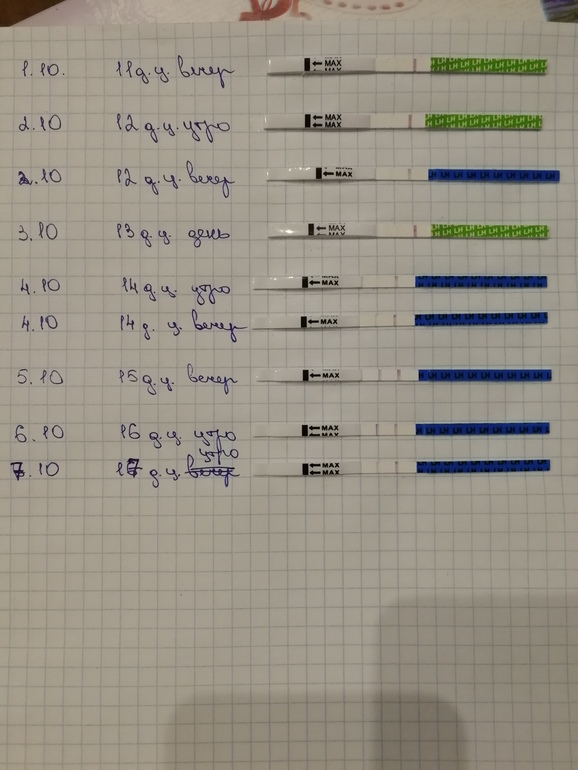 1.10. 11 д.ц. вечер MAX MAX LH LH LH LH LH LH LH
2.10 12 д.ц. утро MAX MAX LH LH LH LH LH LH LH
2.10 12 д.ц. вечер MAX LH LH LH LH LH LH LH
3.10 13 д.ц. день MAX LH LH LH LH LH LH LH
4.10 14 д.ц. утро MAX LH LH LH LH LH LH LH
4.10 14 д.ц. вечер MAX LH LH LH LH LH LH LH
5.10 15 д.ц. вечер MAX LH LH LH LH LH LH LH
6.10 16 д.ц. утро MAX MAX LH LH LH LH LH LH LH
утро
7.10 17 д.ц. вечер MAX MAX LH LH LH LH LH LH LH